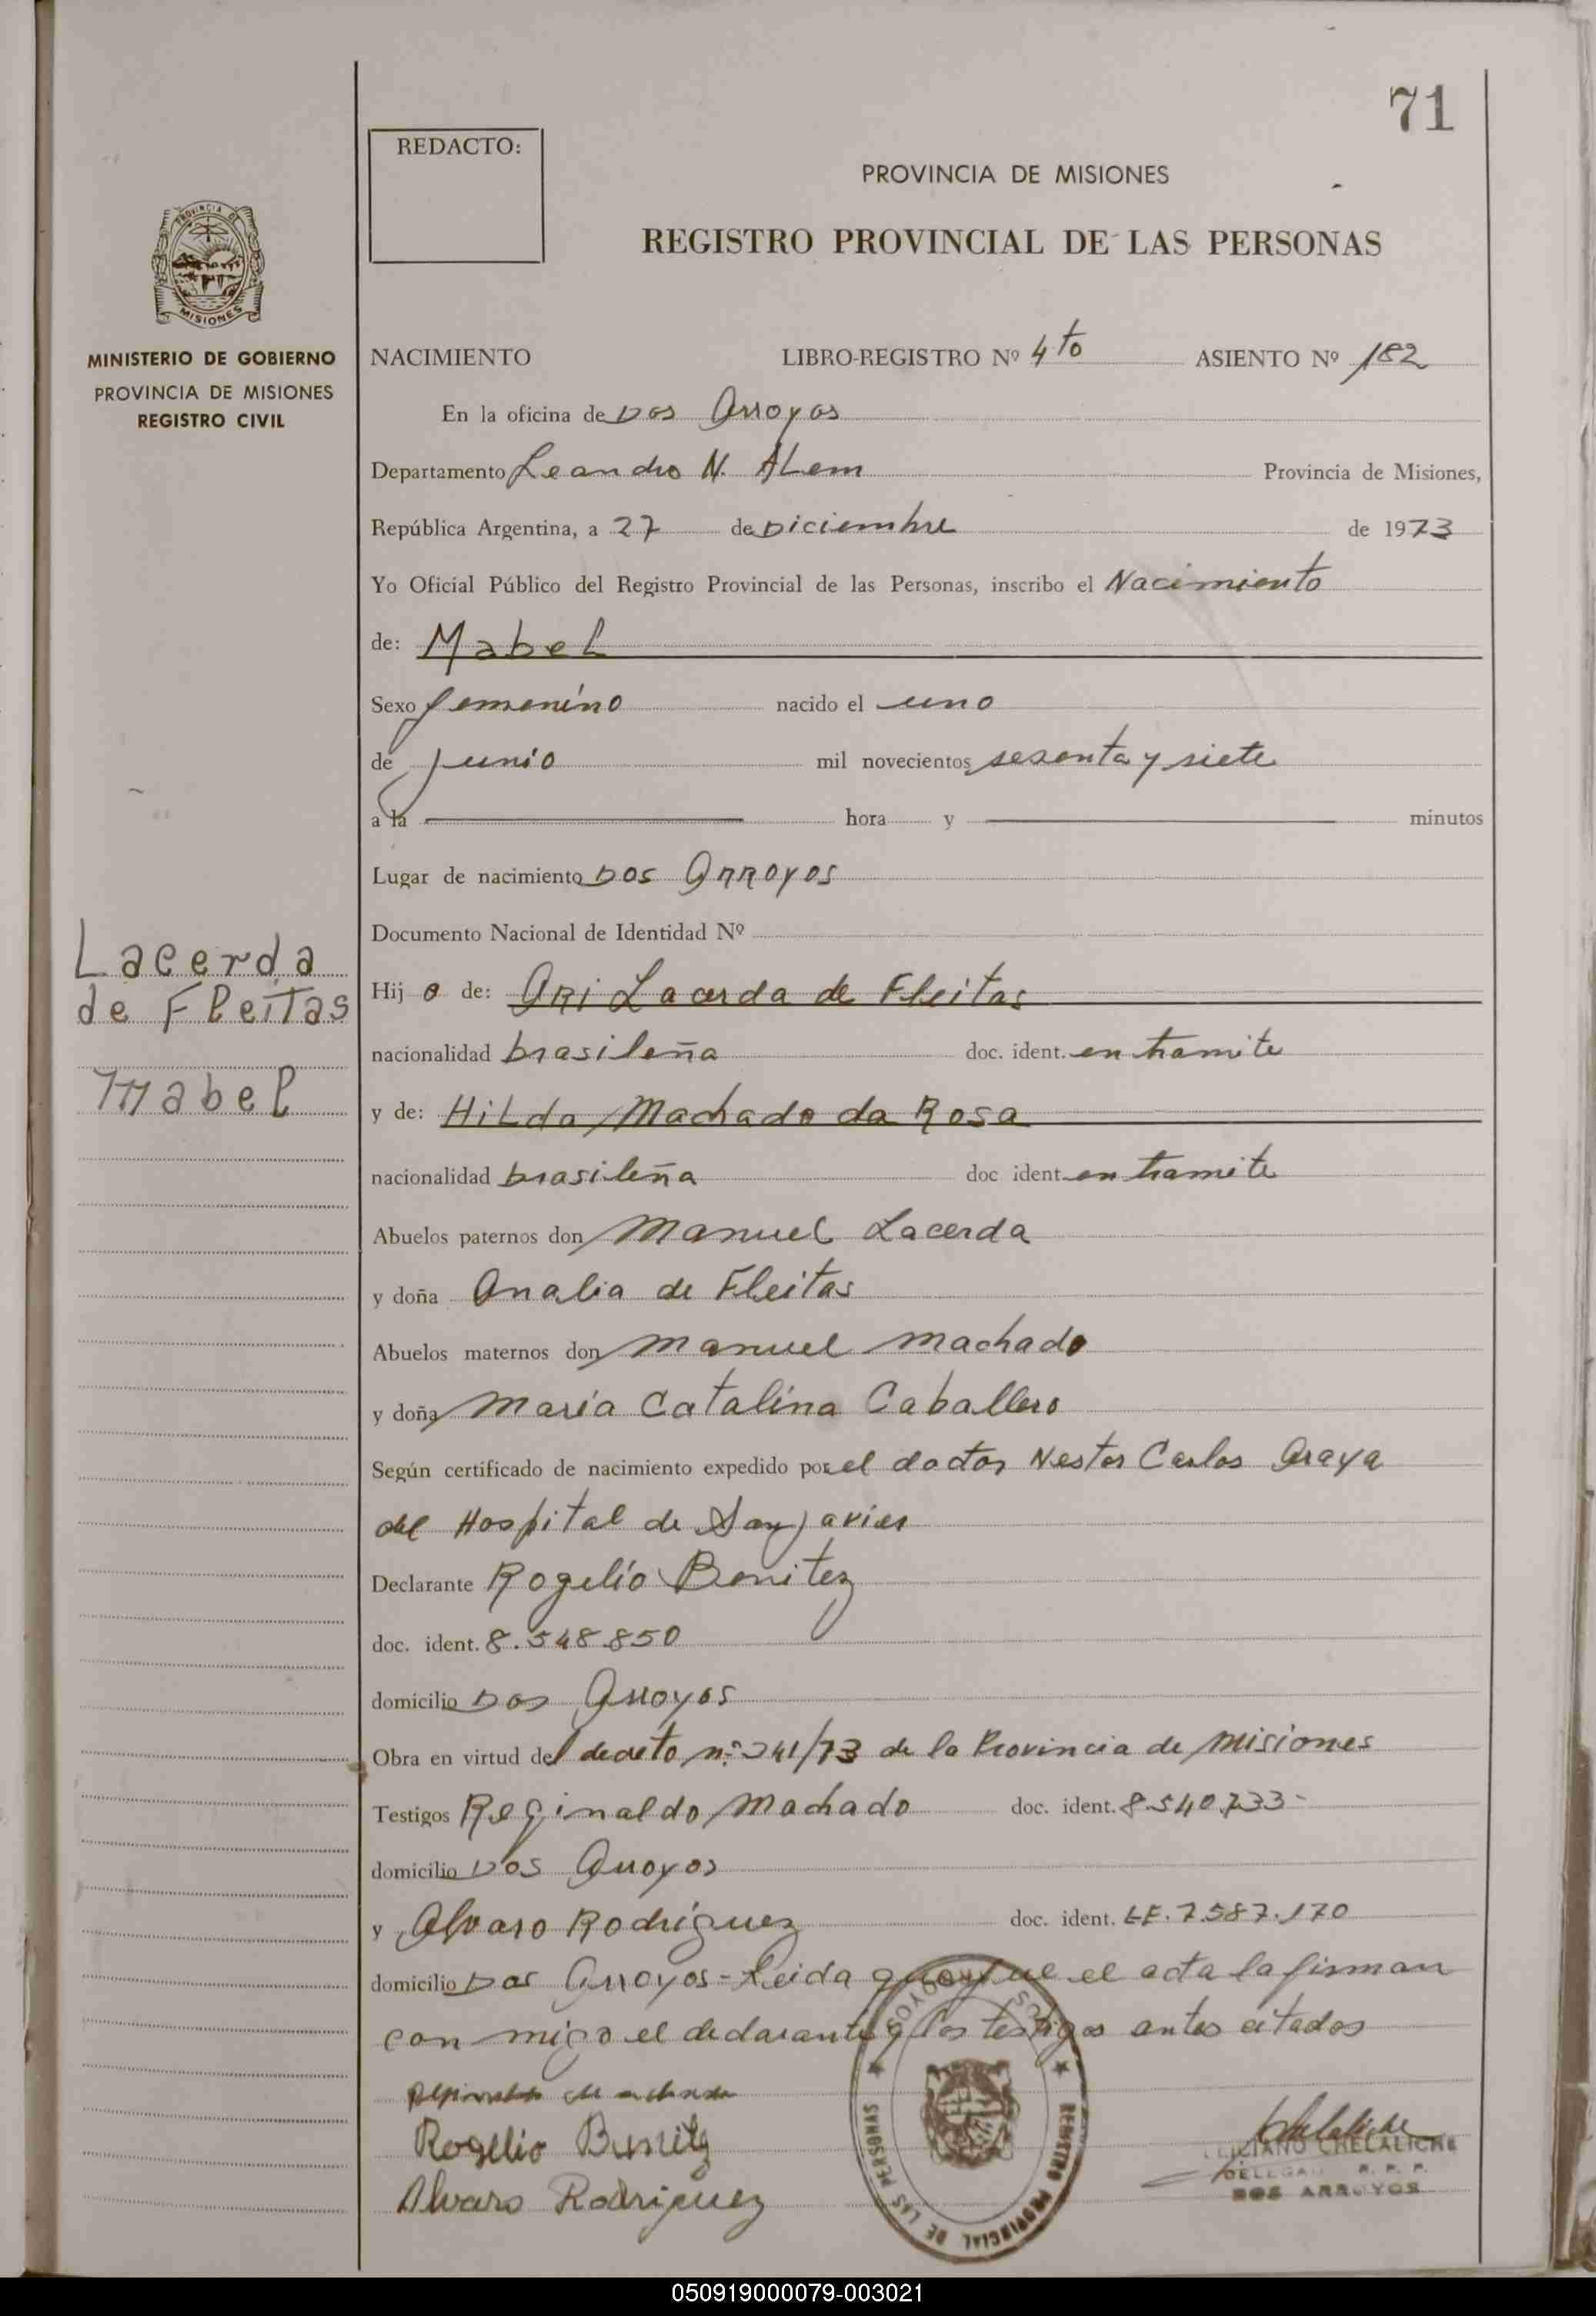 71
REDACTO:
PROVINCIA DE MISIONES
REGISTRO PROVINCIAL DE LAS PERSONAS
PROVINCIA DE
MISIONES
MINISTERIO DE GOBIERNO
PROVINCIA DE MISIONES
REGISTRO CIVIL
NACIMIENTO LIBRO-REGISTRO Nº 4to ASIENTO Nº 182
En la oficina de Dos Arroyos
Departamento Leandro N. ALem Provincia de Misiones,
República Argentina, a 27 de Diciembre de 1973
Yo Oficial Público del Registro Provincial de las Personas, inscribo el Nacimiento
de: Mabel
Sexo femenino nacido el uno
de junio mil novecientos sesenta y siete
a la hora y minutos
Lugar de nacimiento Dos Arroyos
Documento Nacional de Identidad Nº
Lacerda
de Fleitas
Mabel
Hij a de: Ari Lacerda de Fleitas
nacionalidad brasileña doc. ident. en tramite
y de: Hilda Machado da Rosa
nacionalidad brasileña doc ident. en tramite
Abuelos paternos don Manuel Lacerda
y doña Analia de Fleitas
Abuelos maternos don Manuel Machado
y doña Maria Catalina Caballero
Según certificado de nacimiento expedido por el doctor Nestor Carlos Araya
del Hospital de San Javier
Declarante Rogelio Benitez
doc. ident. 8.548.850
domicilio Dos Arroyos
Obra en virtud del decreto nº 241/73 de la Provincia de Misiones
Testigos Reginaldo Machado doc. ident. 8.540.733-
domicilio Dos Arroyos
y Alvaro Rodriguez doc. ident. LE. 7.587.170
domicilio Dos Arroyos - Leida que fue el acta la firman
con migo el declarante y los testigos antes citados
Reginaldo Machado
Rogelio Benitez
Alvaro Rodriguez
DOS ARROYOS
REGISTRO PROVINCIAL DE LAS PERSONAS
CHELALICHE
R. P. P.
DOS ARROYOS
050919000079-003021